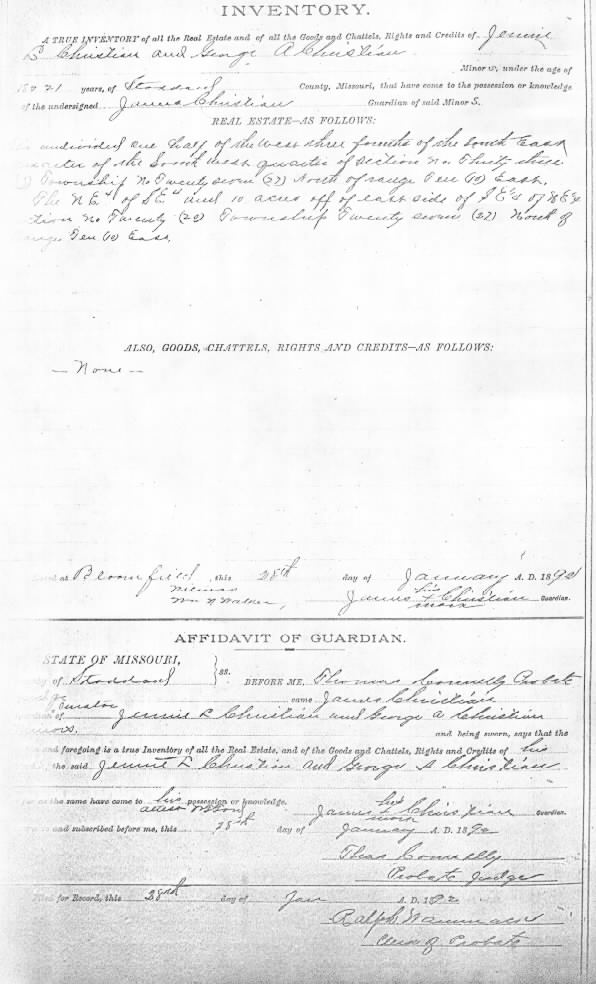 INVENTORY.
A TRUE INVENTORY of all the Real Estate and of all the Goods and Chattels, Rights and Credits of Jennie
Christian and George A Christian
Minors, under the age of
18 & 21 years, of Stoddard County, Missouri, that have come to the possession or knowledge
of the undersigned James Christian Guardian of said Minor S.
REAL ESTATE—AS FOLLOWS:
undivided one half of the West three fourths of the South East
quarter of the South West quarter of Section No. Thirty three
Township No Twenty seven (27) North of range Ten (10) East.
The N.E¼ of S.E¼ and 10 acres off of east side of S E¼ of
tion No Twenty Township Twenty seven (27) North of
Ten (10) East.
ALSO, GOODS, CHATTELS, RIGHTS AND CREDITS—AS FOLLOWS:
— None —
at Bloomfield, this 28th day of January A. D. 189
Witness his
Wm N Walker, James x Christian Guardian.
mark
AFFIDAVIT OF GUARDIAN.
STATE OF MISSOURI,
ty of Stoddard } ss. BEFORE ME, Thomas Connelly Probate
came James Christian
Curator
of Jennie Christian and George A Christian
and being sworn, says that the
and foregoing is a true Inventory of all the Real Estate, and of the Goods and Chattels, Rights and Credits of his
the said Jennie Christian and George A Christian
as the same have come to his possession or knowledge.
his
James x Christian Guardian.
mark
and subscribed before me, this 28th day of January A. D. 189
Thos Connelly
Probate Judge
Filed for Record, this day of Jan A. D. 1892
Ralph
Clerk of Probate